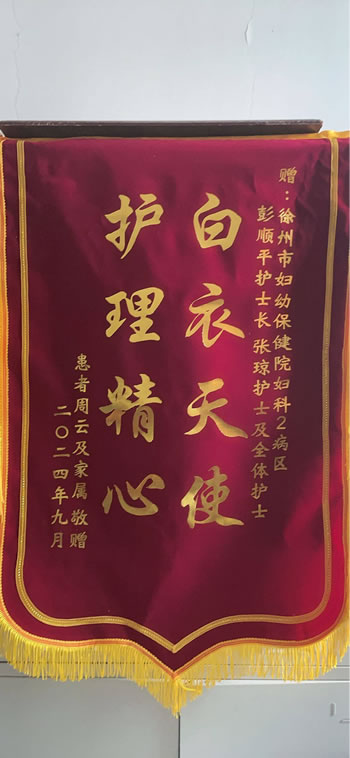 赠：徐州市妇幼保健院妇科2病区
彭顺平护士长张琼护士及全体护士
白衣天使
护理精心
患者周云及家属敬赠
二〇二四年九月